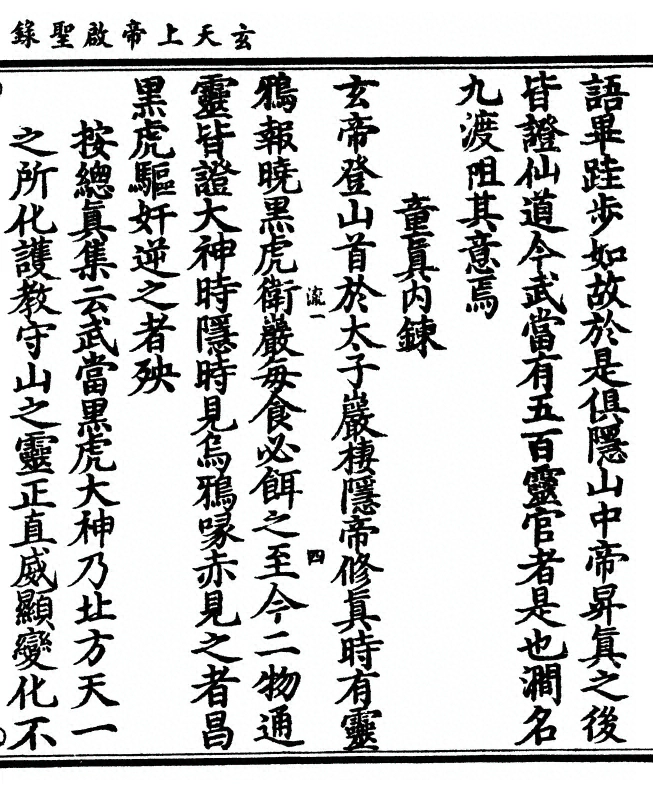 玄天上帝啟聖錄
語畢跬步如故於是俱隱山中帝昇眞之後
皆證仙道今武當有五百靈官者是也澗名
九渡阻其意焉
童眞內鍊
玄帝登山首於太子巖棲隱帝修眞時有靈
鴉報曉黑虎衛巖每食必餌之至今二物通
靈皆證大神時隱時見烏鴉喙赤見之者昌
黑虎驅奸逆之者殃
按總眞集云武當黑虎大神乃北方天一
之所化護教守山之靈正直威顯變化不
流一
四